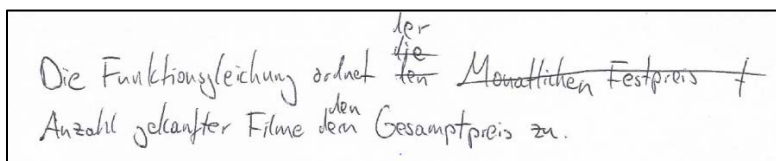 der
die
Die Funktionsgleichung ordnet den Monatlichen Festpreis +
den
Anzahl gekaufter Filme dem Gesamptpreis zu.